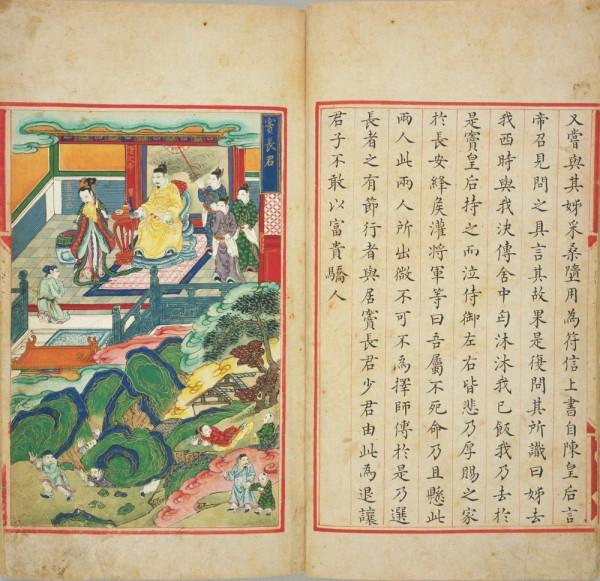 又嘗與其姊采桑墮用為符信上書自陳皇后言
帝召見問之具言其故果是復問其所識曰姊去
我西時與我決傳舍中匄沐沐我已飯我乃去於
是竇皇后持之而泣侍御左右皆悲乃厚賜之家
於長安絳侯灌將軍等曰吾屬不死命乃且懸此
兩人此兩人所出微不可不為擇師傅於是乃選
長者之有節行者與居竇長君少君由此為退讓
君子不敢以富貴驕人
竇長君